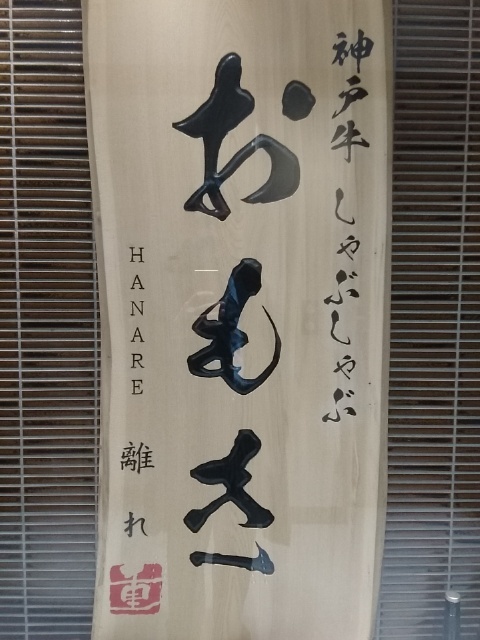 神戸牛 しゃぶしゃぶ
おもき
HANARE 離れ
重